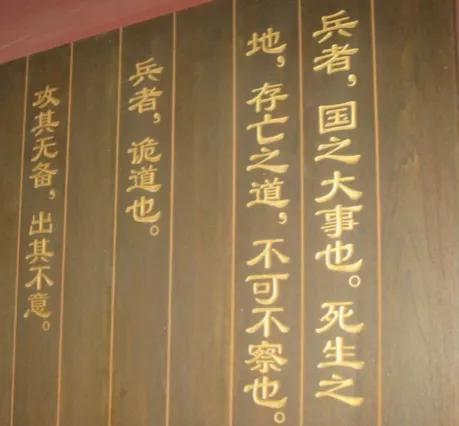 兵者，国之大事也。死生之
地，存亡之道，不可不察也。
兵者，诡道也。
攻其无备，出其不意。